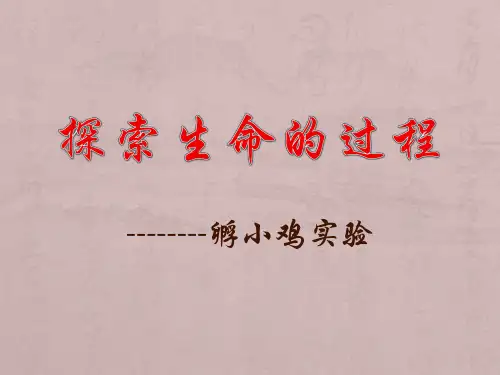 探索生命的过程
--------孵小鸡实验